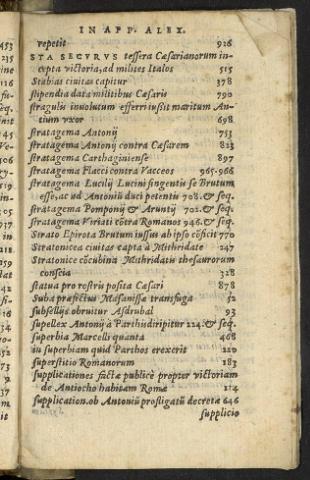 IN APP. ALEX.
repetit 926
STA SECVRVS tessera Cæsarianorum in-
cepta victoria, ad milites Italos 515
Stabias ciuitas capitur 378
stipendia data militibus Cæsaris 790
stragulis inuolutum efferri iussit maritum An-
tium vxor 698
stratagema Antonij 753
stratagema Antonij contra Cæsarem 823
stratagema Carthaginiense 897
stratagema Flacci contra Vacceos 965.966
stratagema Lucilij Lucini fingentis se Brutum
esse, ac ad Antoniũ duci petentis 708. & seq.
stratagema Pomponij & Aruntij 702. & seq.
stratagema Viriati cõtra Romanos 946. & seq.
Strato Epirota Brutum iussus ab ipso cõficit 770
Stratonicea ciuitas capta à Mithridate 247
Stratonice cõcubina Mithridatis thesaurorum
conscia 328
statua pro rostris posita Cæsari 878
Suba præfectus Masanissæ transfuga 52
subsellijs obruitur Asdrubal 93
supellex Antonij à Parthis diripitur 224. & seq.
superbia Marcelli quanta 468
in superbiam quid Parthos erexerit 220
superstitio Romanorum 183
supplicationes factæ publicè propter victoriam
de Antiocho habitam Romæ 174
supplication. ob Antoniũ profligatũ decretæ 646
supplicio
453
235
ine
126
seq.
145
506
519
in-
305
217
in
218
42
75
73
37
it